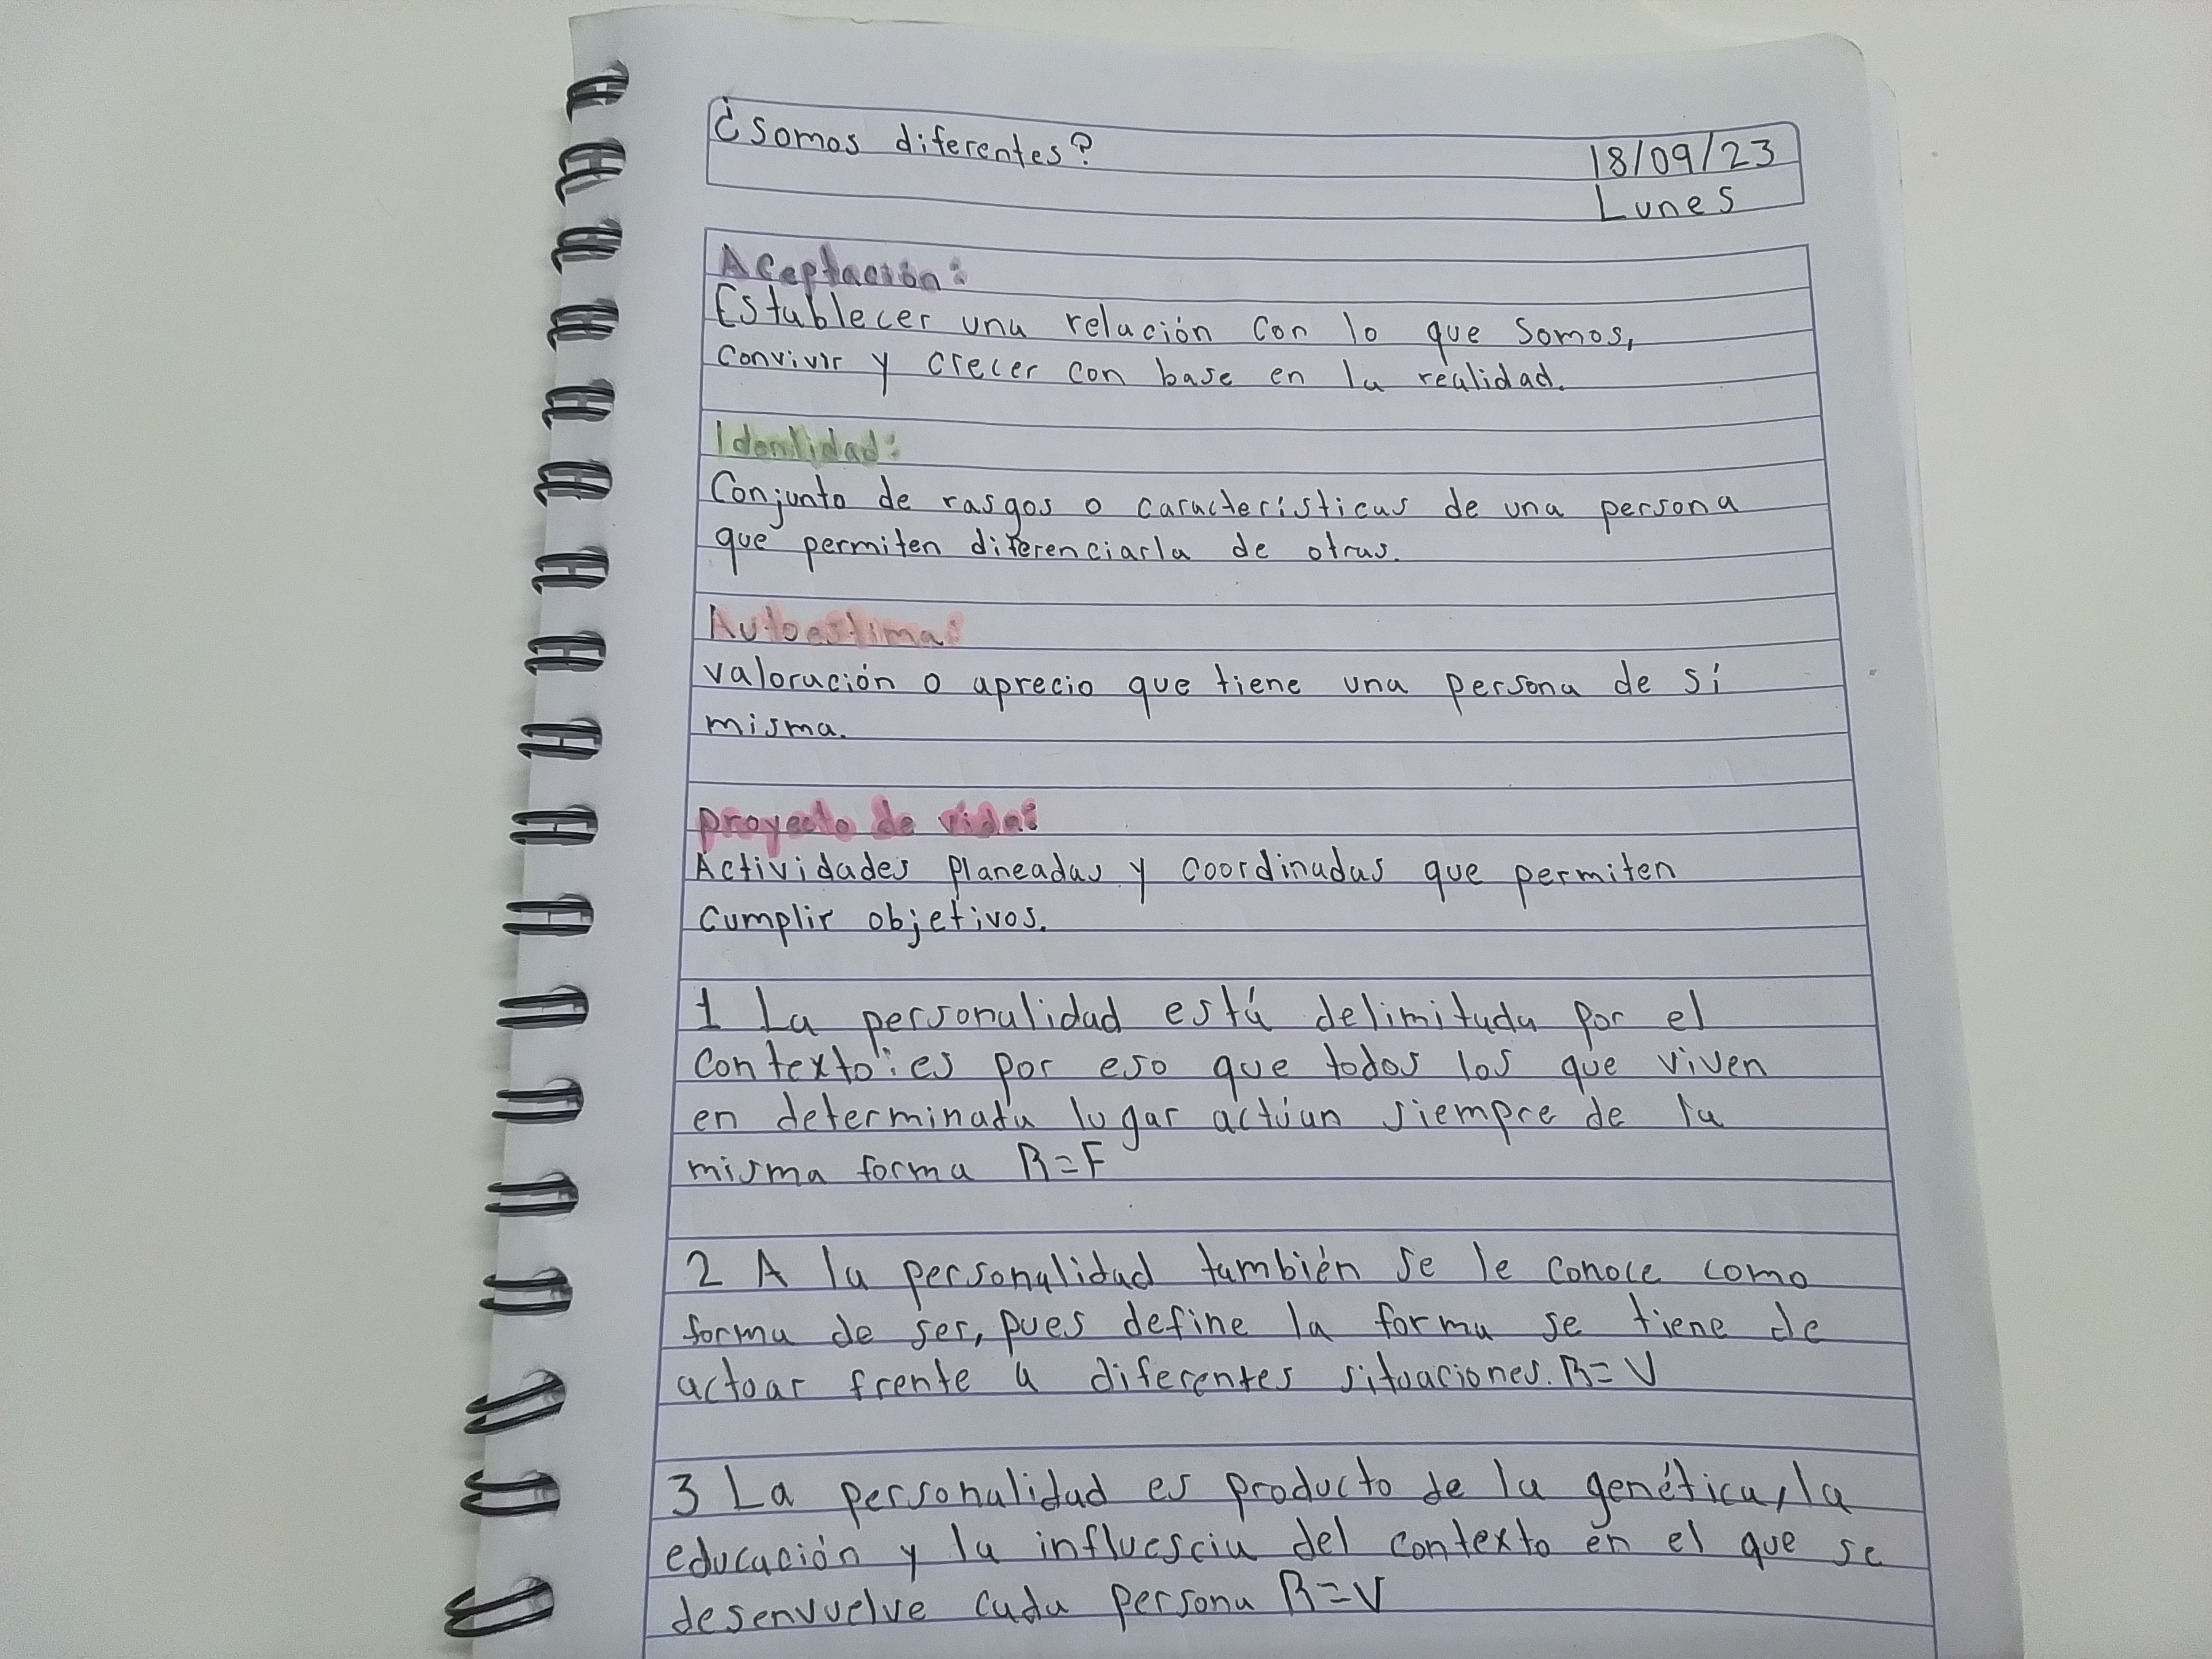 ¿Somos diferentes?
18/09/23
Lunes
Aceptación:
Establecer una relación con lo que somos,
convivir y crecer con base en la realidad.
Identidad:
Conjunto de rasgos o características de una persona
que permiten diferenciarla de otras.
Autoestima:
valoración o aprecio que tiene una persona de sí
misma.
proyecto de vida:
Actividades planeadas y coordinadas que permiten
cumplir objetivos.
1 La personalidad está delimitada por el
contexto: es por eso que todos los que viven
en determinada lugar actúan siempre de la
misma forma R=F
2 A la personalidad también se le conoce como
forma de ser, pues define la forma se tiene de
actuar frente a diferentes situaciones. R=V
3 La personalidad es producto de la genética, la
educación y la influescia del contexto en el que se
desenvuelve cada persona R=V